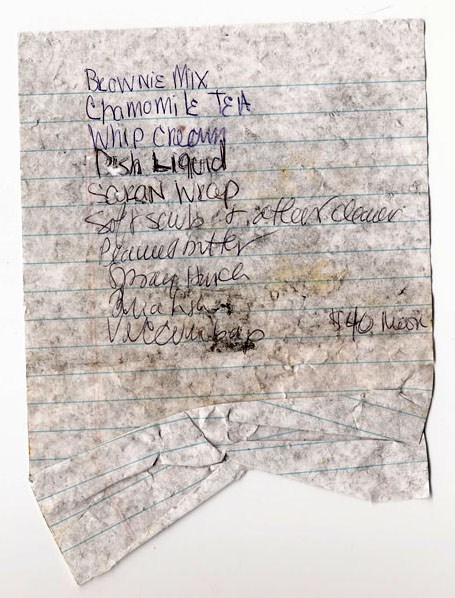 BROWNIE MIX
CHAMOMILE TEA
WHIP CREAM
DISH LIQUID
SARAN WRAP
Soft scrub & other cleaner
Peanut butter
Spray starch
Vaccum bags
$40